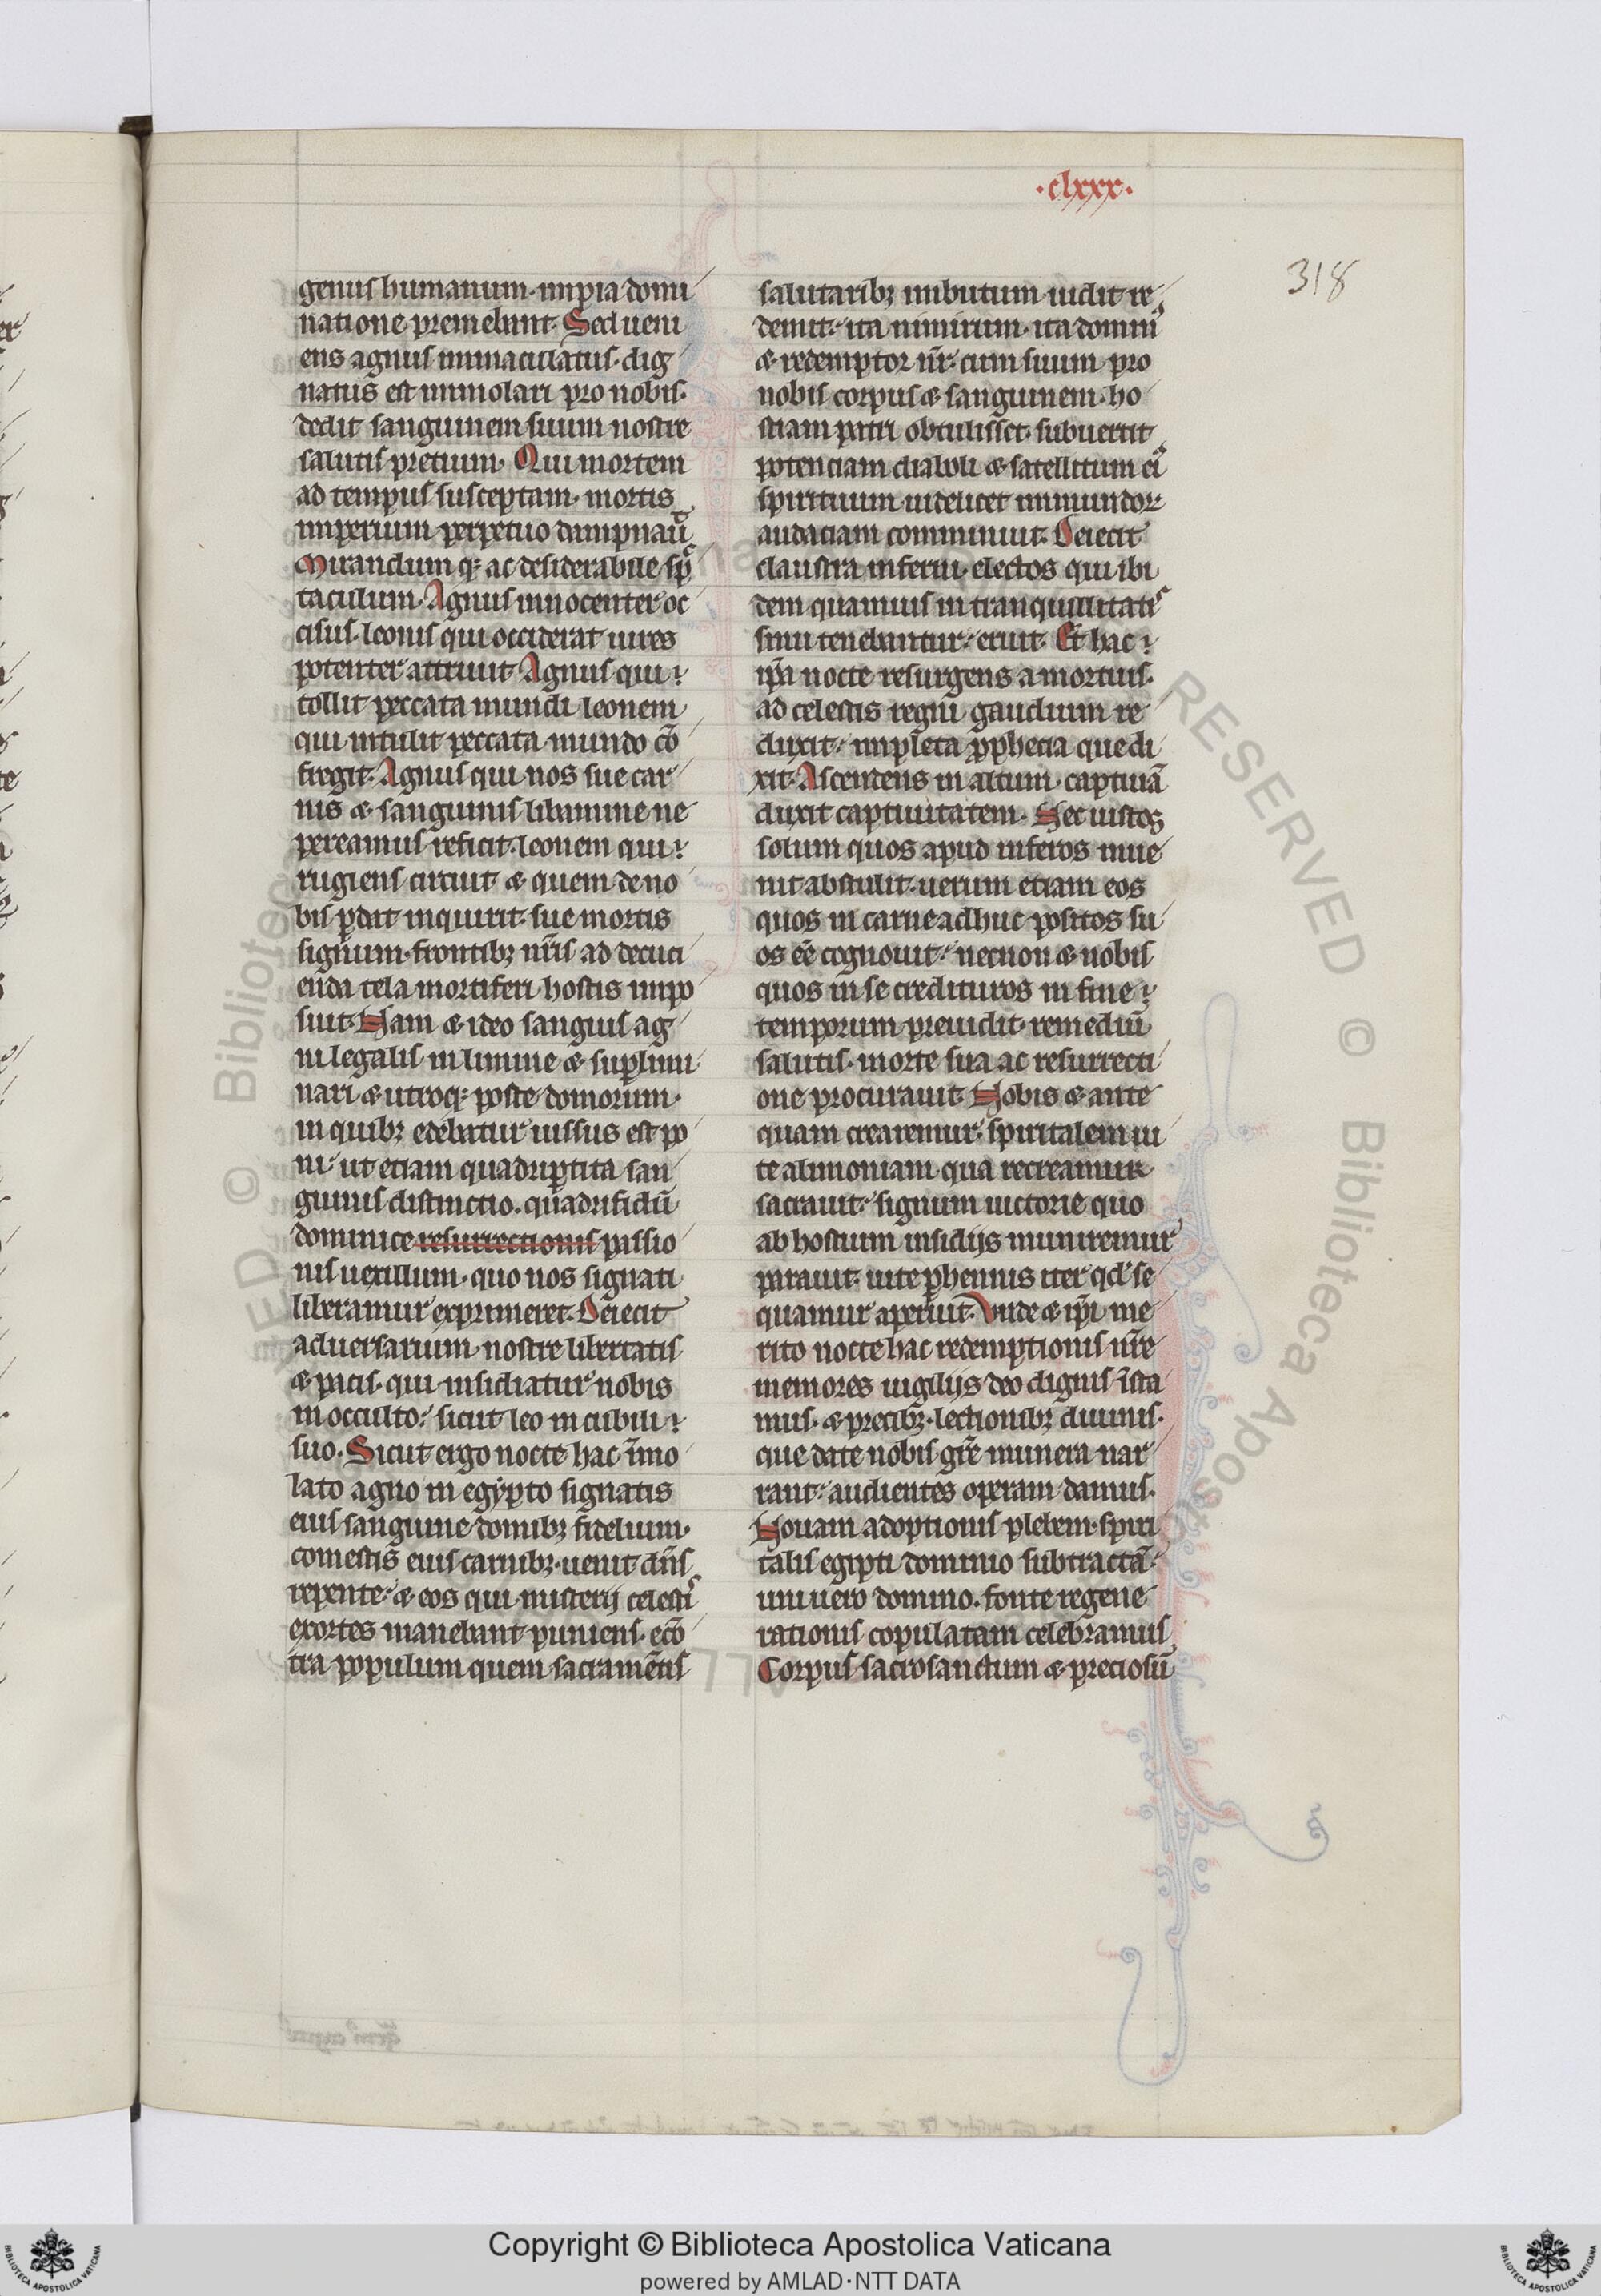 ·clxxx·
318
genus humanum· impia domi
natione premebant· Sed ueni
ens agnus immaculatus· dig
natus est immolari pro nobis·
dedit sanguinem suum nostre
salutis pretium· Qui mortem
ad tempus susceptam· mortis
imperium perpetuo dampnauit
Mirandum q; ac desiderabile spec
taculum· Agnus innocenter oc
cisus· leonis qui occiderat uires
potenter attriuit· Agnus qui
tollit peccata mundi· leonem
qui intulit peccata mundo cō
fregit· Agnus qui nos sue car
nis & sanguinis libamine ne
pereamus reficit· leonem qui
rugiens circuit & quem de no
bis ꝑdat inquirit· sue mortis
signum· frontibꝫ nr̄is ad decuci
enda tela mortiferi hostis impo
suit· Nam & ideo sanguis ag
ni legalis in limine & suꝑlimi
nari & utroq; poste domorum·
in quibꝫ edebatur iussus est po
ni· ut etiam quadriꝑtita san
guinis distinctio· quadrifidū
dominice resurrectionis passio
nis uexillum· quo nos signati
liberamur exprimeret· Deiecit
aduersarium nostre libertatis
& pacis· qui insidiatur nobis
in occulto· sicut leo in cubili
suo· Sicut ergo nocte hac īmo
lato agno in egypto signatis
eius sanguine domibꝫ fidelium·
comestis eius carnibꝫ· uenit dn̄s
repente· & eos qui misterij celestis
exortes manebant puniens· ecō
tra populum quem sacramētis
salutaribꝫ imbutum iudit re
demit· ita nimirum· ita dominus
& redemptor nr̄· cum suum pro
nobis corpus & sanguinem· ho
stiam patri obtulisset· subuertit
potenciam diaboli & satellitum ei9
spirituum uidelicet immundoꝝ
audaciam comminuit· Deiecit
claustra inferni· electos qui ibi
dem quamuis in tranquillitatis
sinu tenebantur· eruit· Et hac
ip̄a nocte resurgens a mortuis·
ad celestis regni gaudium re
duxit· impleta ꝓphecia que di
xit· Ascendens in altum· captiuā
duxit captiuitatem· Nec iustos
solum quos apud inferos inue
nit abstulit· uerum etiam eos
quos in carne adhuc positos su
os eē cognouit· necnon & nobis
quos in se credituros in fine
temporum preuidit· remediū
salutis· morte sua ac resurrecti
one procurauit· Nobis & ante
quam crearemur· spiritalem ui
te alimoniam qua recreamur
sacrauit· signum uictorie quo
ab hostium insidijs muniremur
parauit· uite ꝑhennis iter qd' se
quamur aperuit· Vnde & ip̄i me
rito nocte hac redemptionis nr̄e
memores uigilijs deo dignis īsta
mus· & precibꝫ· lectionibꝫ diuinis·
que date nobis gr̄e munera nar
rant· audientes operam damus·
Nouam adoptionis plebem· spiri
talis egipti dominio subtractā·
uni uero domino· fonte regene
rationis copulatam celebramus
Corpus sacrosanctum & preciosū
RESERVED © Biblioteca Apostolica
Copyright © Biblioteca Apostolica Vaticana
powered by AMLAD·NTT DATA